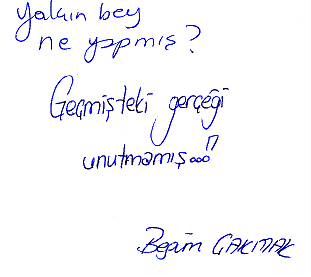 Yalçın bey
ne yapmış?
Geçmişteki gerçeği
unutmamış..."
Begüm ÇAKMAK